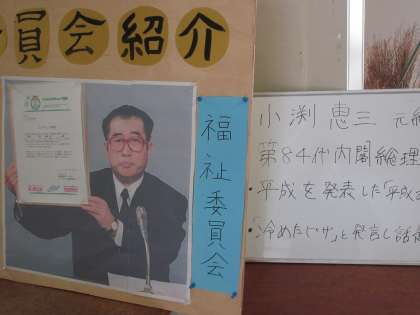 員会紹介
福祉委員会
小渕恵三 元
第84代内閣総理
・平成を発表した「平成
・「冷めたピザ」と発言し話